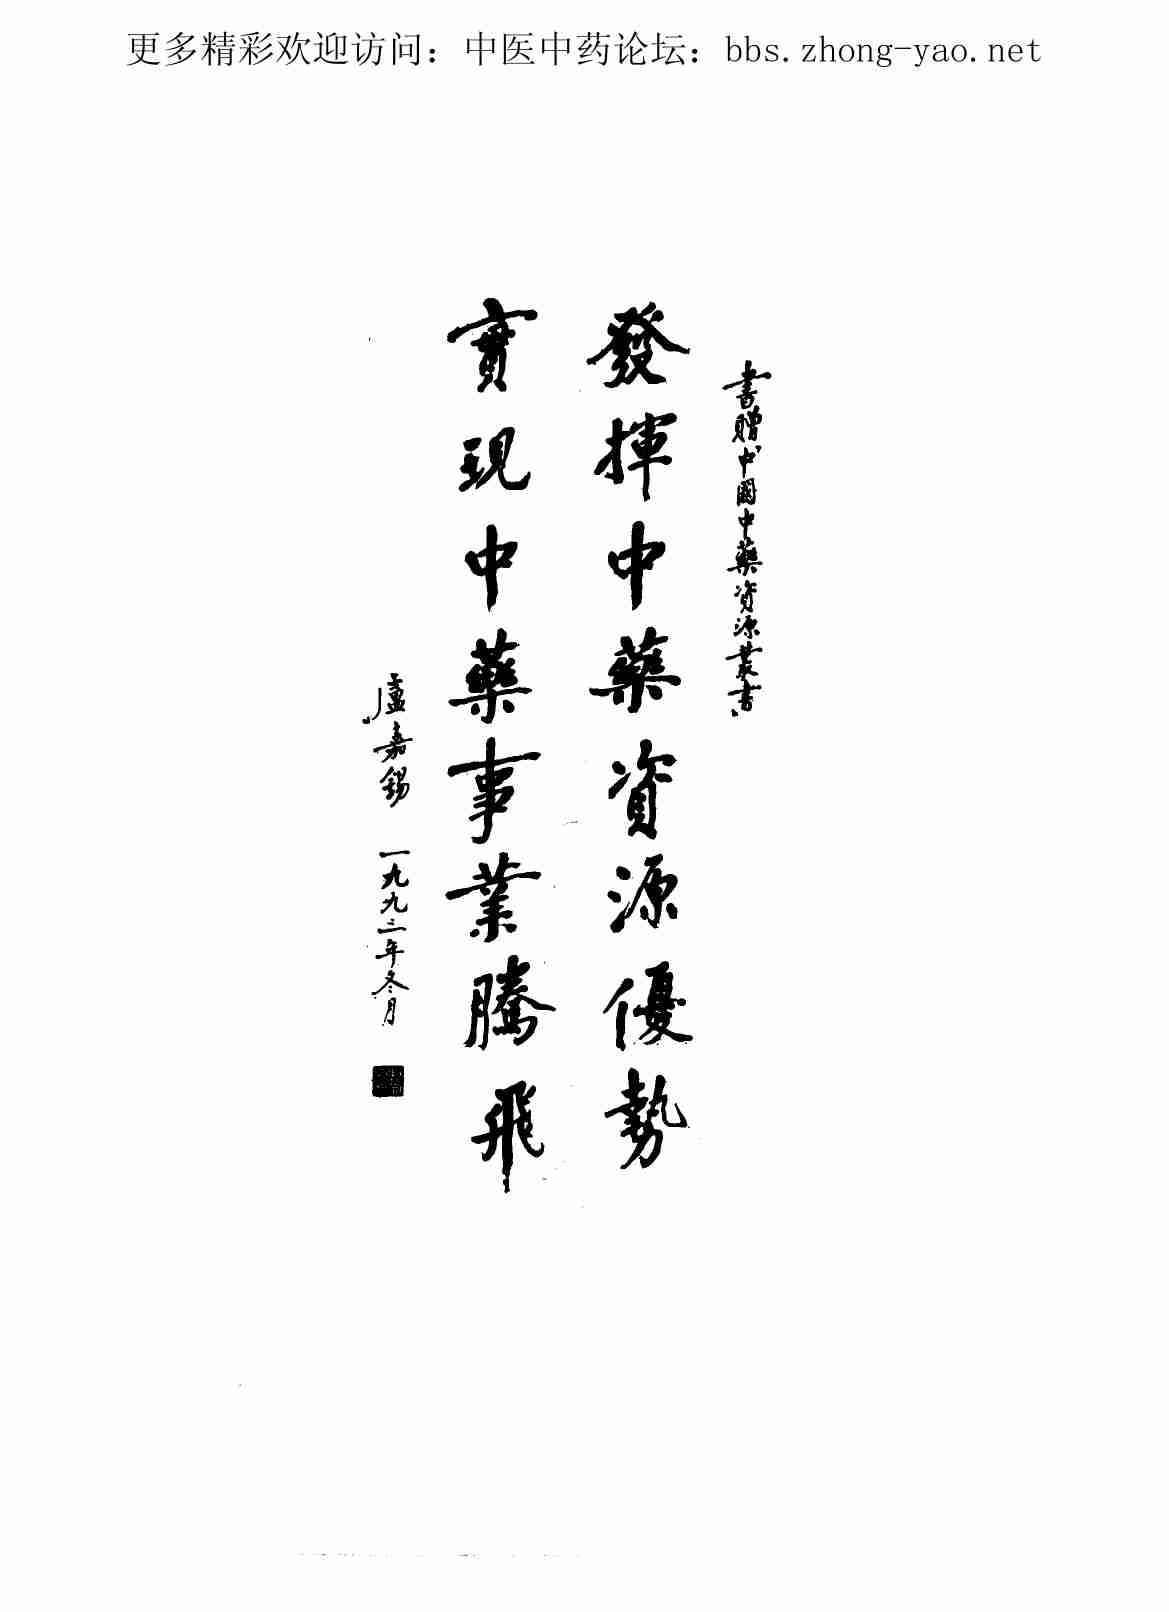 更多精彩欢迎访问：中医中药论坛：bbs.zhong-yao.net
書贈“中國中藥資源叢書”
發揮中藥資源優勢
實現中藥事業騰飛
盧嘉錫 一九九三年冬月